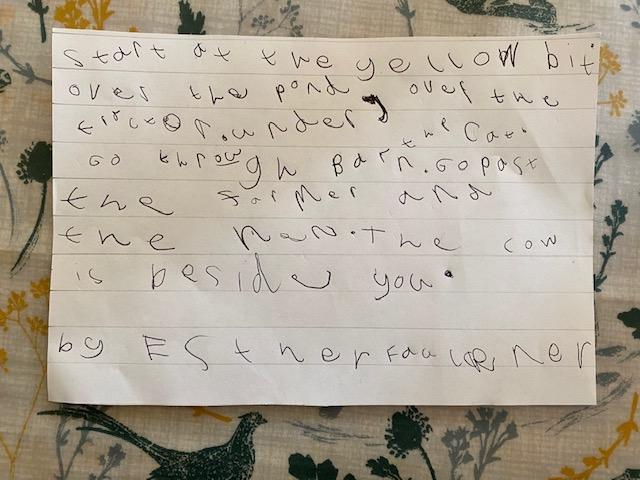 start at the yellow bit
over the pond, over the
tractor. under the cat.
Go through Barn. Go past
the farmer and
the hen. the cow
is beside you.
by Esther